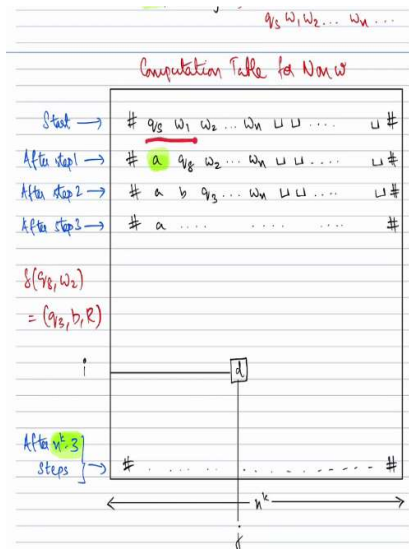 q₅ w₁ w₂ ... wₙ ...
Computation Table for N on w
Start → # q₅ w₁ w₂ ... wₙ ⊔ ⊔ .... ⊔ #
After step1 → # a q₈ w₂ ... wₙ ⊔ ⊔ .... ⊔ #
After step2 → # a b q₃ ... wₙ ⊔ ⊔ .... ⊔ #
After step3 → # a .... .... .... #
δ(q₈, w₂)
= (q₃, b, R)
i d
After nᵏ-3
Steps → # .............. #
nᵏ
j